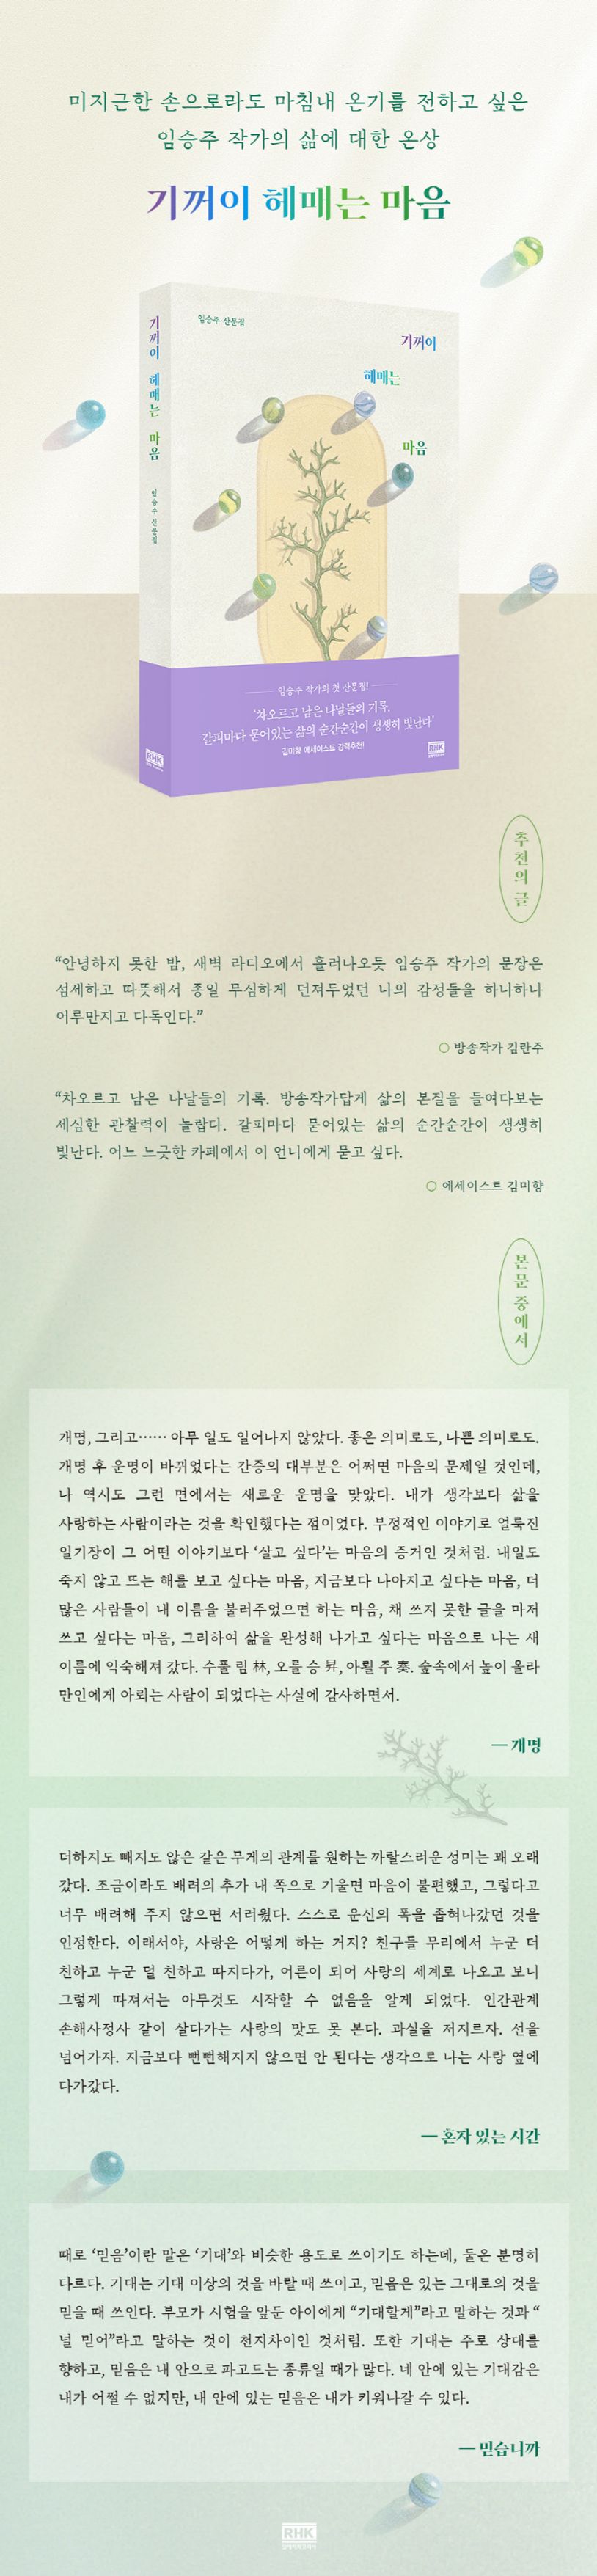 미지근한 손으로라도 마침내 온기를 전하고 싶은
임승주 작가의 삶에 대한 온상
기꺼이 헤매는 마음
기꺼이 헤매는 마음
임승주 산문집
임승주 산문집
기꺼이
헤매는
마음
임승주 작가의 첫 산문집!
'차오르고 남은 나날들의 기록.
갈피마다 묻어있는 삶의 순간순간이 생생히 빛난다'
김미향 에세이스트 강력추천!
RHK
RHK
추천의 글
“안녕하지 못한 밤, 새벽 라디오에서 흘러나오듯 임승주 작가의 문장은
섬세하고 따뜻해서 종일 무심하게 던져두었던 나의 감정들을 하나하나
어루만지고 다독인다.”
○ 방송작가 김란주
“차오르고 남은 나날들의 기록. 방송작가답게 삶의 본질을 들여다보는
세심한 관찰력이 놀랍다. 갈피마다 묻어있는 삶의 순간순간이 생생히
빛난다. 어느 느긋한 카페에서 이 언니에게 묻고 싶다.
○ 에세이스트 김미향
본문 중에서
개명, 그리고…… 아무 일도 일어나지 않았다. 좋은 의미로도, 나쁜 의미로도.
개명 후 운명이 바뀌었다는 간증의 대부분은 어쩌면 마음의 문제일 것인데,
나 역시도 그런 면에서는 새로운 운명을 맞았다. 내가 생각보다 삶을
사랑하는 사람이라는 것을 확인했다는 점이었다. 부정적인 이야기로 얼룩진
일기장이 그 어떤 이야기보다 ‘살고 싶다’는 마음의 증거인 것처럼. 내일도
죽지 않고 뜨는 해를 보고 싶다는 마음, 지금보다 나아지고 싶다는 마음, 더
많은 사람들이 내 이름을 불러주었으면 하는 마음, 채 쓰지 못한 글을 마저
쓰고 싶다는 마음, 그리하여 삶을 완성해 나가고 싶다는 마음으로 나는 새
이름에 익숙해져 갔다. 수풀 림 林, 오를 승 昇, 아뢸 주 奏. 숲속에서 높이 올라
만인에게 아뢰는 사람이 되었다는 사실에 감사하면서.
— 개명
더하지도 빼지도 않은 같은 무게의 관계를 원하는 까랄스러운 성미는 꽤 오래
갔다. 조금이라도 배려의 추가 내 쪽으로 기울면 마음이 불편했고, 그렇다고
너무 배려해 주지 않으면 서러웠다. 스스로 운신의 폭을 좁혀나갔던 것을
인정한다. 이래서야, 사랑은 어떻게 하는 거지? 친구들 무리에서 누군 더
친하고 누군 덜 친하고 따지다가, 어른이 되어 사랑의 세계로 나오고 보니
그렇게 따져서는 아무것도 시작할 수 없음을 알게 되었다. 인간관계
손해사정사 같이 살다가는 사랑의 맛도 못 본다. 과실을 저지르자. 선을
넘어가자. 지금보다 뻔뻔해지지 않으면 안 된다는 생각으로 나는 사랑 옆에
다가갔다.
— 혼자 있는 시간
때로 ‘믿음’이란 말은 ‘기대’와 비슷한 용도로 쓰이기도 하는데, 둘은 분명히
다르다. 기대는 기대 이상의 것을 바랄 때 쓰이고, 믿음은 있는 그대로의 것을
믿을 때 쓰인다. 부모가 시험을 앞둔 아이에게 “기대할게”라고 말하는 것과 “
널 믿어”라고 말하는 것이 천지차이인 것처럼. 또한 기대는 주로 상대를
향하고, 믿음은 내 안으로 파고드는 종류일 때가 많다. 네 안에 있는 기대감은
내가 어쩔 수 없지만, 내 안에 있는 믿음은 내가 키워나갈 수 있다.
— 믿습니까
RHK